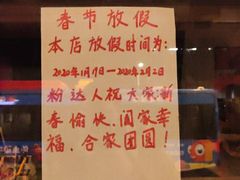 春节放假
本店放假时间为:
2020年1月17日—2020年2月2日
粉达人祝大家新
春愉快、阖家幸
福、合家团圆!